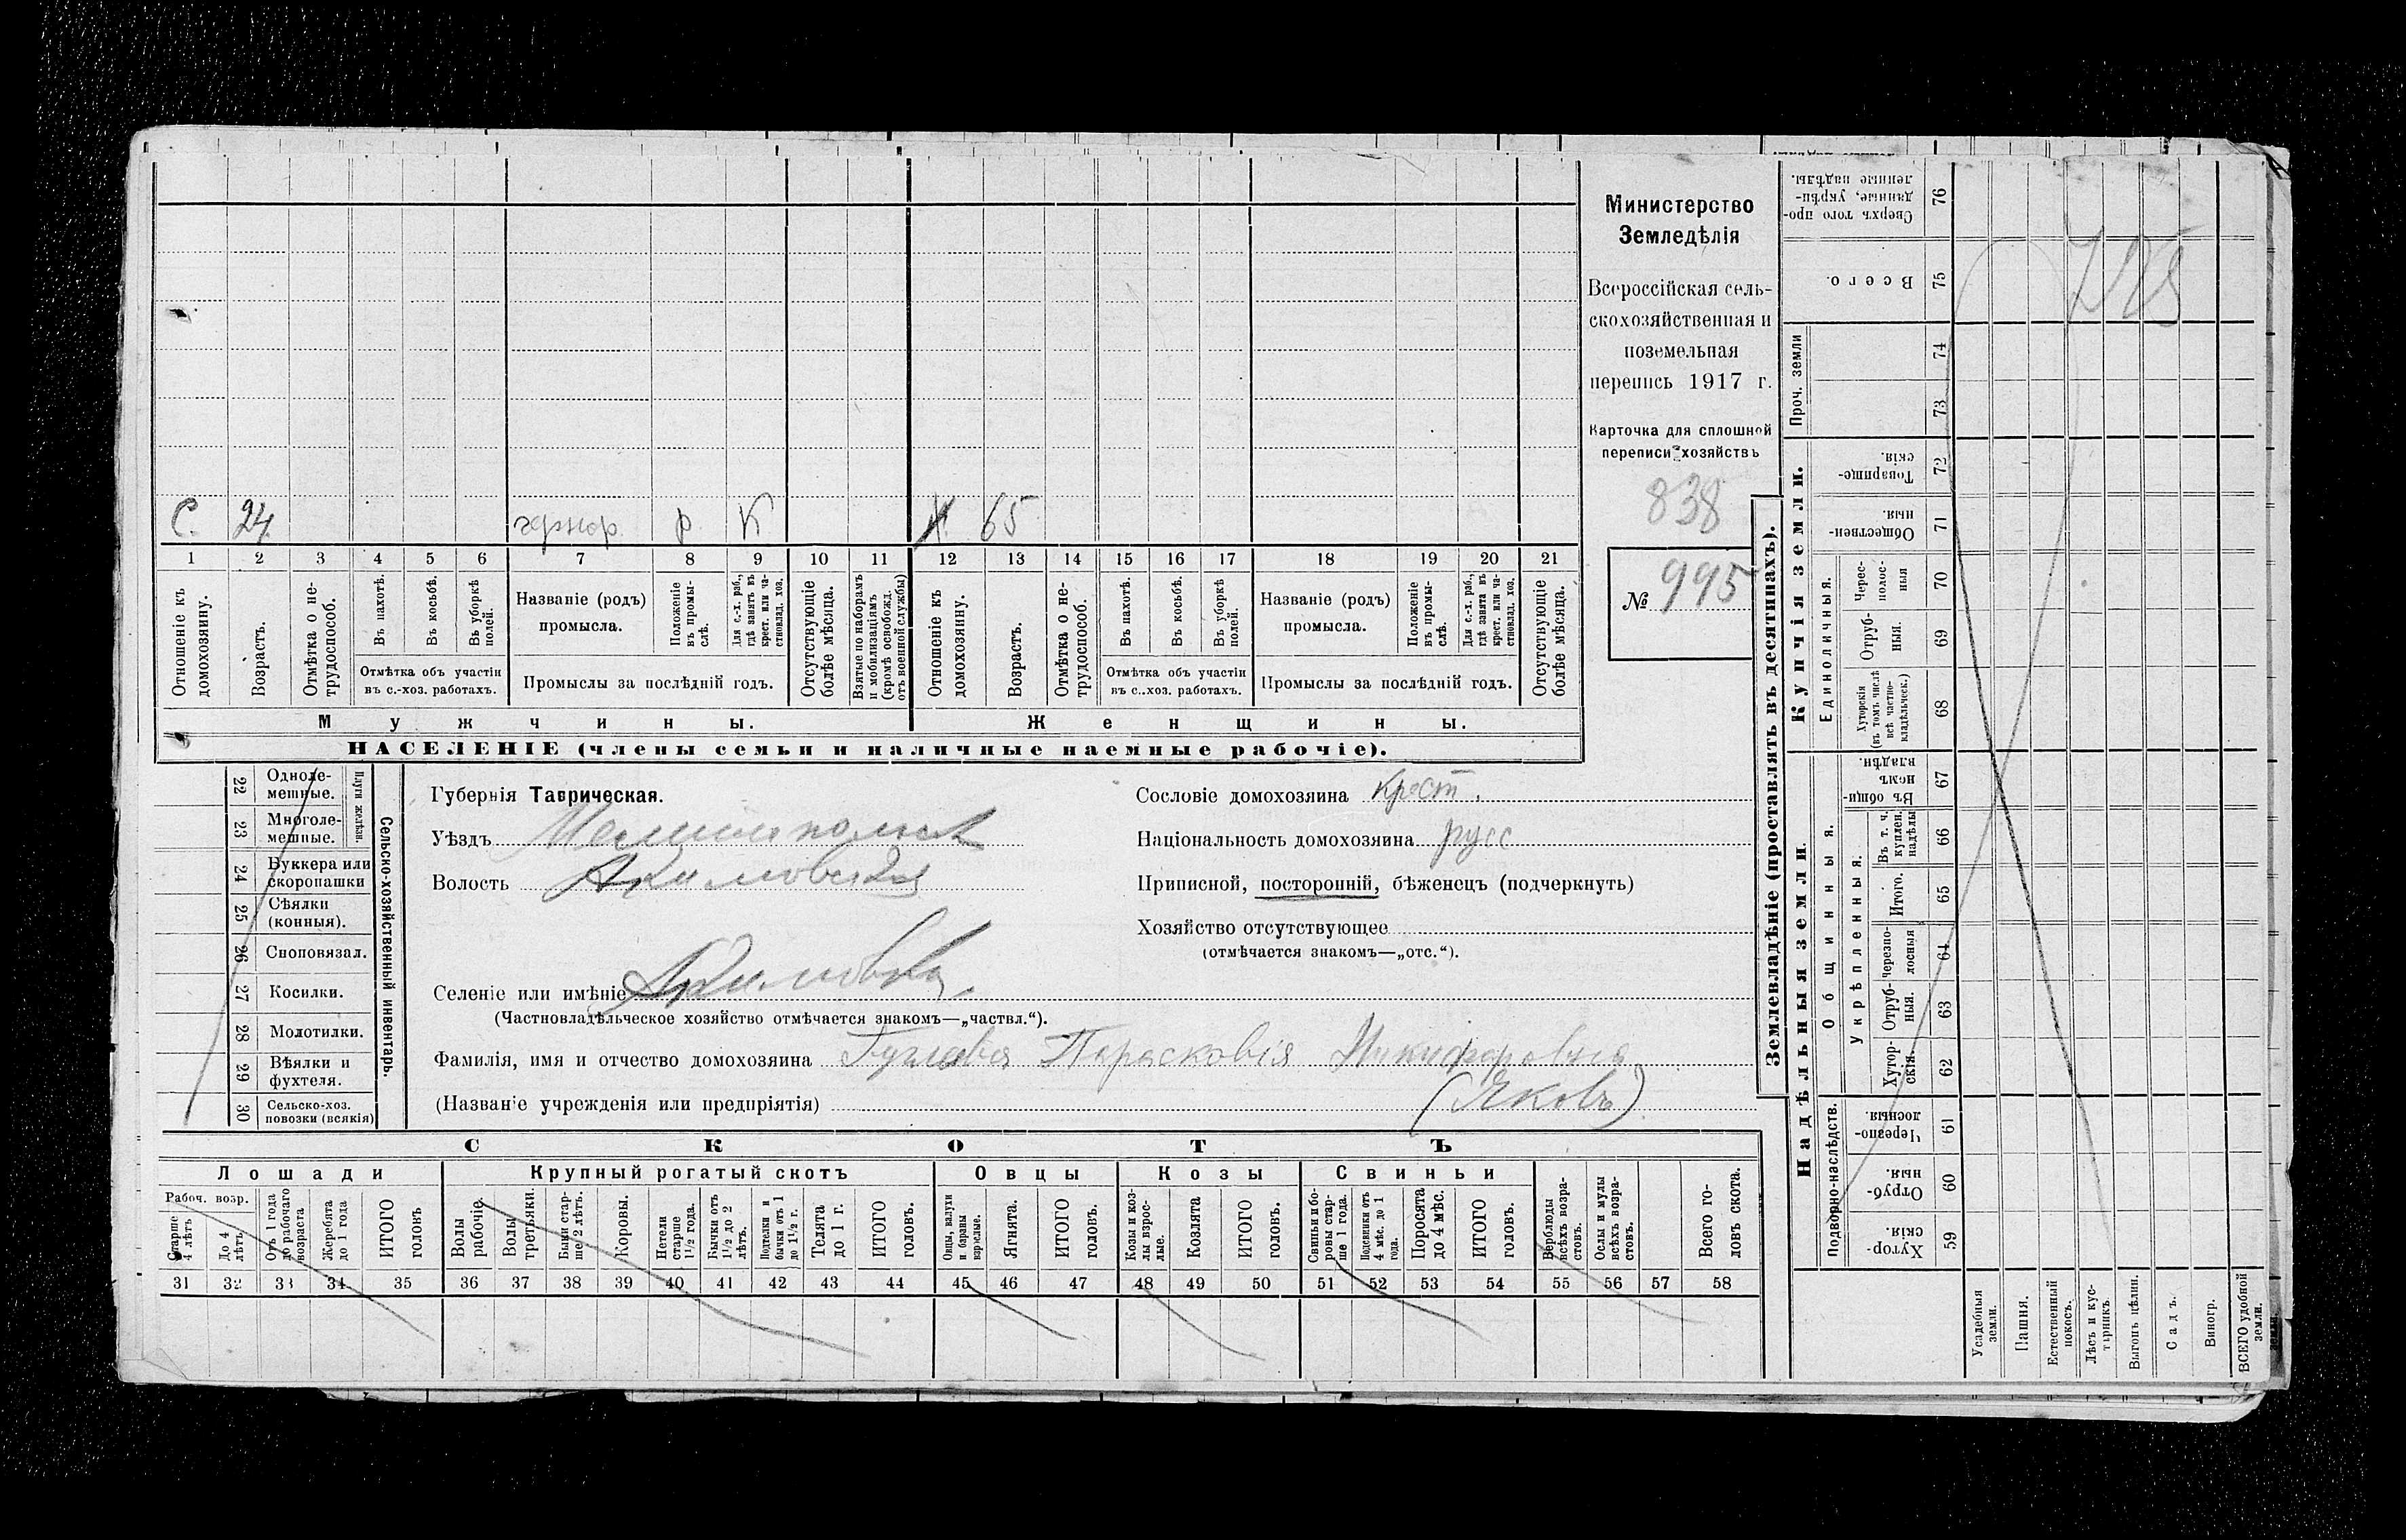 С. 24. чернор. р. К Х. 65
1 2 3 4 5 6 7 8 9 10 11 12 13 14 15 16 17 18 19 20 21
Отношеніе къ домохозяину.
Возрастъ.
Отмѣтка о не-
трудоспособ.
Въ пахотѣ.
Въ косьбѣ.
Въ уборкѣ
полей.
Отмѣтка объ участіи
въ с.-хоз. работахъ.
Названіе (родъ)
промысла.
Положеніе
въ промы-
слѣ.
Для с.-х. раб.,
гдѣ занятъ въ
крест. или ча-
стновлад. хоз.
Промыслы за послѣдній годъ.
Отсутствующіе
болѣе мѣсяца.
Взятые по наборамъ
и мобилизаціямъ
(кромѣ освобожд.
отъ военной службы)
Отношеніе къ
домохозяину.
Возрастъ.
Отмѣтка о не-
трудоспособ.
Въ пахотѣ.
Въ косьбѣ.
Въ уборкѣ
полей.
Отмѣтка объ участіи
въ с.-хоз. работахъ.
Названіе (родъ)
промысла.
Положеніе
въ промы-
слѣ.
Для с.-х. раб.,
гдѣ занята въ
крест. или ча-
стновлад. хоз.
Промыслы за послѣдній годъ.
Отсутствующіе
болѣе мѣсяца.
Мужчины. Женщины.
НАСЕЛЕНІЕ (члены семьи и наличные наемные рабочіе).
Министерство
Земледѣлія
Всероссійская сель-
скохозяйственная и
поземельная
перепись 1917 г.
Карточка для сплошной
переписи хозяйствъ
838
№ 995
22 Однолe-
мешные.
23 Многоле-
мешные.
Плуги желѣзн.
24 Буккера или
скоропашки
25 Сѣялки
(конныя).
26 Сноповязал.
27 Косилки.
28 Молотилки.
29 Вѣялки и
фухтеля.
30 Сельско-хоз.
повозки (всякія)
Сельско-хозяйственный инвентарь.
Губернія Таврическая.
Уѣздъ Мелитопольск
Волость Акимовская
Селеніе или имѣніе Акимовка.
(Частновладѣльческое хозяйство отмѣчается знакомъ—„частвл.“).
Фамилія, имя и отчество домохозяина Парасковія Никифоровна
(Названіе учрежденія или предпріятія) (Яковъ)
Сословіе домохозяина крест.
Національность домохозяина русс
Приписной, посторонній, бѣженецъ (подчеркнуть)
Хозяйство отсутствующее
(отмѣчается знакомъ—„отс.“).
СКОТЪ
Лошади Крупный рогатый скотъ Овцы Козы Свиньи
Рабоч. возр.
Старше
4 лѣтъ
До 4
лѣтъ
Отъ 1 года
до рабочаго
возраста
Жеребята
до 1 года
ИТОГО
головъ
Волы
рабочіе.
Волы
третьяки.
Быки стар-
ше 2 лѣтъ.
Коровы.
Нетели
старше
1½ года.
Бычки отъ
1½ до 2
лѣтъ.
Подтелки и
бычки отъ 1
до 1½ г.
Телята
до 1 г.
ИТОГО
головъ.
Овцы, валухи
и бараны
взрослые.
Ягнята.
ИТОГО
головъ.
Козы и коз-
лы взрос-
лые.
Козлята
ИТОГО
головъ.
Свиньи и бо-
ровы стар-
ше 1 года.
Подсвинки отъ
4 мѣс. до 1
года.
Поросята
до 4 мѣс.
ИТОГО
головъ.
Верблюды
всѣхъ возра-
стовъ.
Ослы и мулы
всѣхъ возра-
стовъ.
Всего го-
ловъ скота.
31 32 33 34 35 36 37 38 39 40 41 42 43 44 45 46 47 48 49 50 51 52 53 54 55 56 57 58
Землевладѣніе (проставлять въ десятинахъ).
Сверхъ того про-
данные, укрѣп-
ленные надѣлы.
76
Всего.
75
Проч. земли
74
73
Купчія земли.
Товарище-
скія.
72
Обществен-
ныя.
71
Единоличныя.
Черес-
полос-
ныя
70
Отруб-
ныя.
69
Хуторскія
(въ томъ числѣ
всѣ частно-
владѣльческ.)
68
Надѣльныя земли
Общинныя.
Въ общи-
номъ
владѣн.
67
Укрѣпленныя.
Въ т. ч.
куплен.
надѣлы
66
Итого.
65
Черезпо-
лосныя
64
Отруб-
ныя.
63
Хутор-
скія.
62
Подворно-наслѣдств.
Черезпо-
лосныя.
61
Отруб-
ныя.
60
Хутор-
скія
59
Усадебныя
земли.
Пашня.
Естественный
покосъ.
Лѣсъ и кус-
тарникъ
Выгонъ цѣлин.
Садъ.
Виногр.
ВСЕГО удобной
земли.